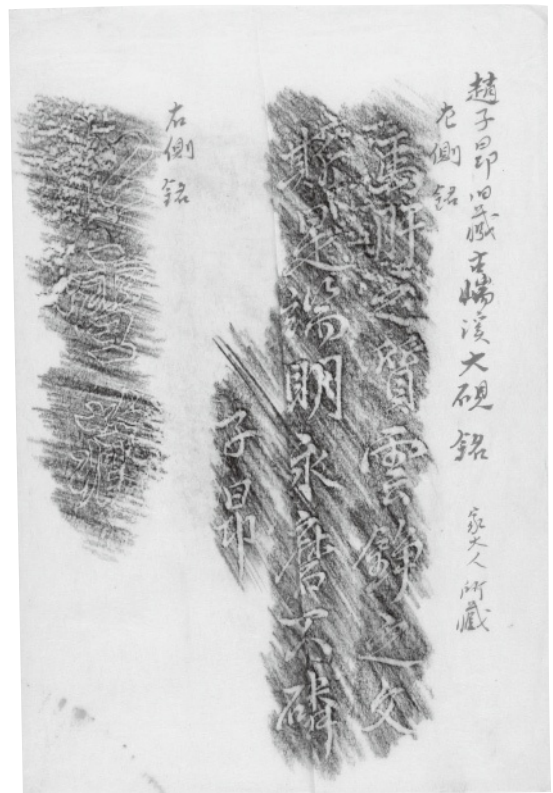 趙子昂旧藏古端溪大硯銘 家大人所藏
左側銘
馬肝之質雲錦之文
斯是端明永磨不磷
子昂
右側銘